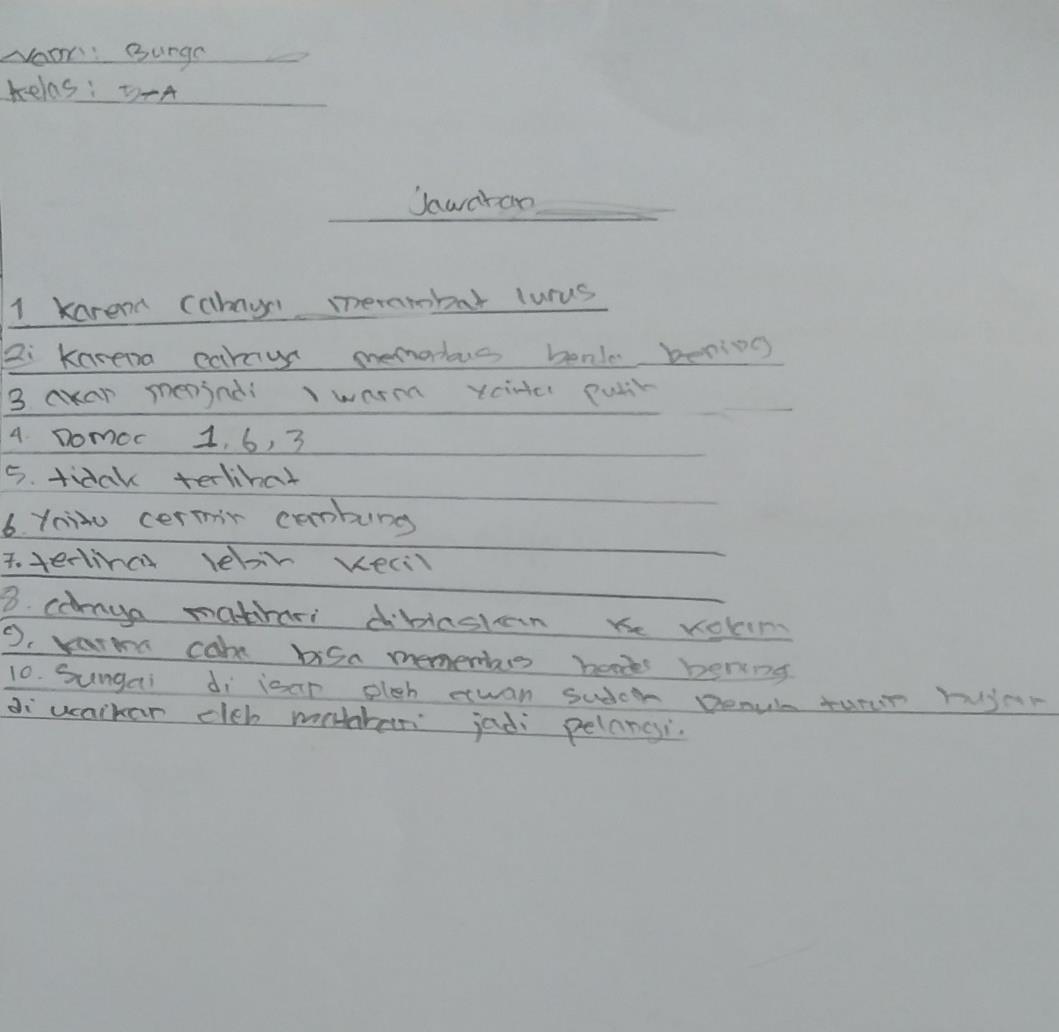 Nama: Bunga
Kelas: 5-A
Jawaban
1 Karena Cahaya merambat lurus
2. Karena cahaya menembus benda bening
3 akan menjadi 1 warna yaitu putih
4. Nomor 1, 6, 3
5. tidak terlihat
6. Yaitu cermin cembung
7. terlihat lebih kecil
8. cahaya matahari dibiaskan ke kolam
9. karna bisa menembus benda bening
10. Sungai di isap oleh awan sudah penuh turun hujan
di uraikan oleh matahari jadi pelangi.